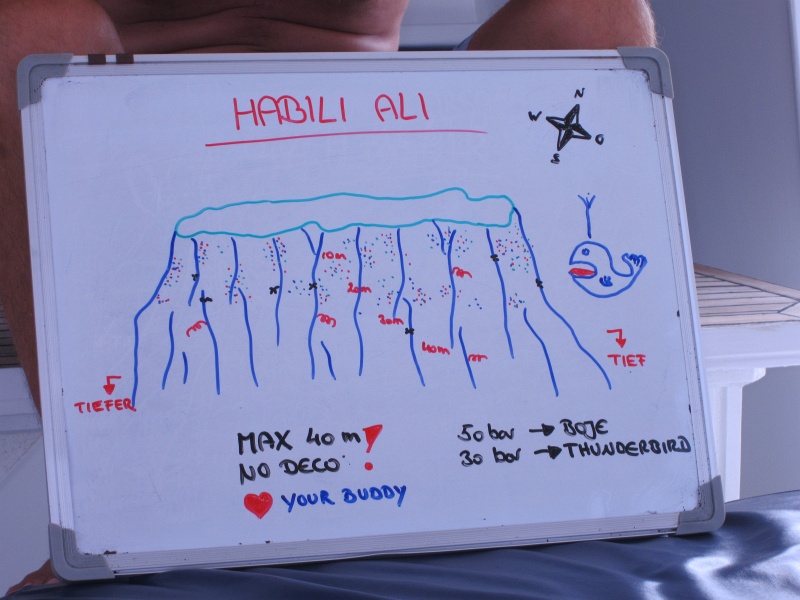 HABILI ALI
N
W O
S
10m
20m
30m
40m
TIEFER
TIEF
MAX 40 m!
NO DECO!
50 bar → BOJE
30 bar → THUNDERBIRD
♥ YOUR BUDDY